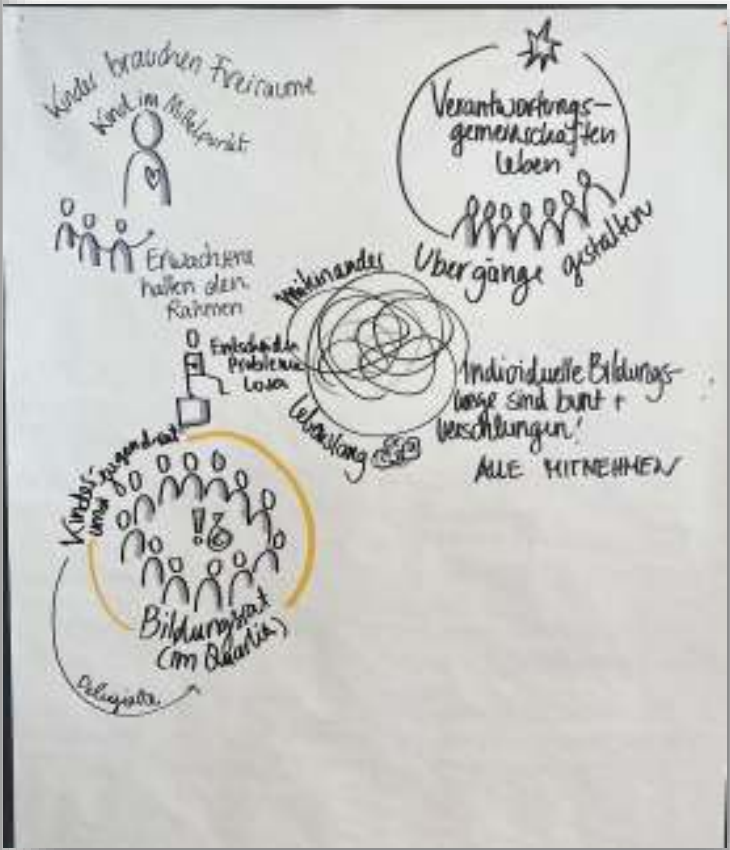 Kinder brauchen Freiräume
Kind im Mittelpunkt
Erwachsene
halten den
Rahmen
Verantwortungs-
gemeinschaften
leben
Übergänge gestalten
Miteinander
Lebenslang
Individuelle Bildungs-
wege sind bunt +
verschlungen!
ALLE MITNEHMEN
Entscheiden
Probleme
lösen
Kinder-
und Jugendrat
!?
Bildungsrat
(im Quartier)
Delegierte